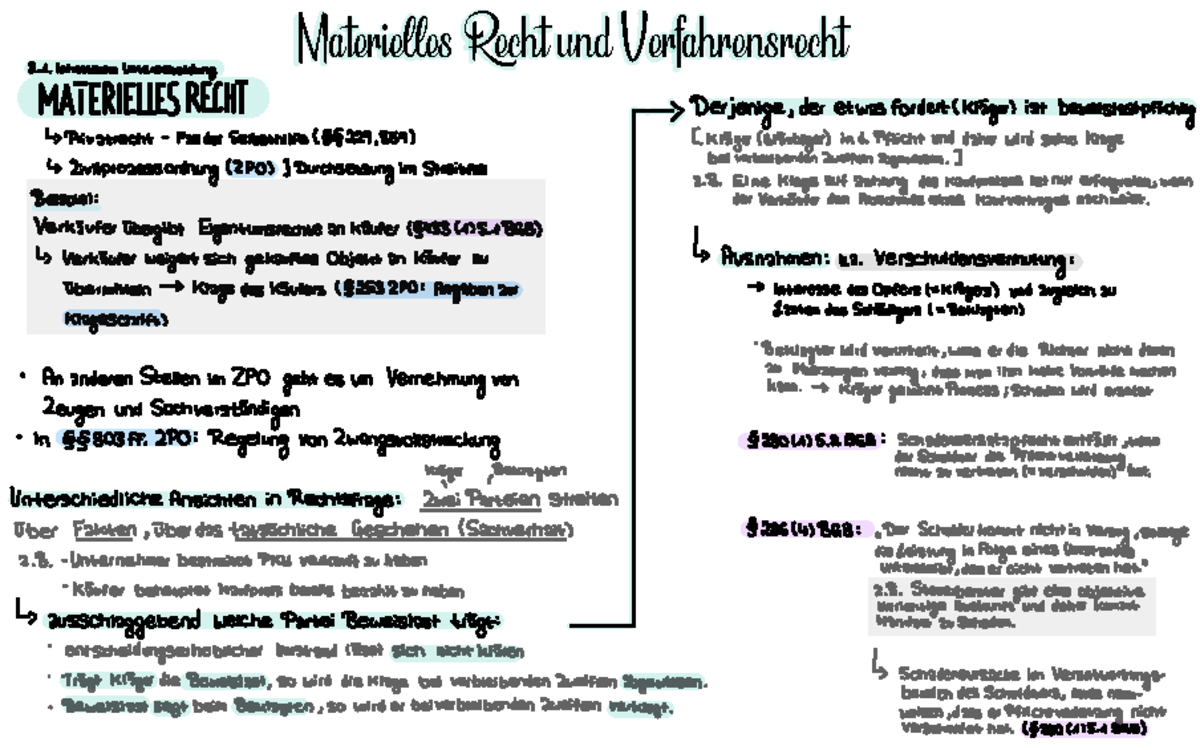 Materielles Recht und Verfahrensrecht
MATERIELLES RECHT
↳ Privatrecht -
↳ Zivilprozessordnung (ZPO) ] Durchsetzung im Streit
Beispiel:
Verkäufer übergibt Eigentumsrechte an Käufer (§433 (1) S.1 BGB)
↳ Verkäufer weigert sich gekauftes Objekt an Käufer zu
→ Klage des Käufers (§253 ZPO: Angaben zur
Klageschrift)
• An anderen Stellen im ZPO geht es um Vernehmung von
Zeugen und Sachverständigen
• In §§ 803 ff. ZPO: Regelung von Zwangsvollstreckung
Kläger Beklagten
Unterschiedliche Ansichten in Rechtsfrage: Zwei Parteien streiten
über Fakten, über das tatsächliche Geschehen (Sachverhalt)
z.B. - Unternehmer behauptet verkauft zu haben
- Käufer behauptet Kaufpreis bereits bezahlt zu haben
↳ ausschlaggebend welche Partei Beweislast trägt:
lässt sich nicht klären
• Trägt Kläger die Beweislast, so wird die Klage bei verbleibenden Zweifeln abgewiesen.
• Beweislast liegt beim Beklagten, so wird er bei verbleibenden Zweifeln verklagt.
Derjenige, der etwas fordert (Kläger) ist beweislastpflichtig
[Kläger (Gläubiger) in d. Pflicht und daher wird seine Klage
bei verbleibenden Zweifeln abgewiesen.]
z.B. Eine Klage auf Zahlung des Kaufpreises ist nur erfolgreich, wenn
der Verkäufer den Abschluss eines Kaufvertrages
↳ Ausnahmen: z.B. Verschuldensvermutung:
→ Interesse des Opfers (=Klägers) und zugleich zu
Lasten des Schädigers (=Beklagten)
Beklagter wird verurteilt, wenn er die Richter nicht davon
zu überzeugen vermag, dass man ihm keine Vorwürfe machen
kann. → Kläger gewinnt Prozess, Schaden wird ersetzt
§280 (1) S.2 BGB: Schadensersatzpflicht entfällt, wenn
der Schuldner die Pflichtverletzung
nicht zu vertreten (=verschulden) hat.
§286 (4) BGB: "Der Schuldner kommt nicht in Verzug, solange
die Leistung in Folge eines Umstands
unterbleibt, den er nicht vertreten hat."
z.B. Steuerberater gibt eine objektive
Auskunft und daher kommt
zu Schaden.
↳ Schadensursache im Verantwortungs-
bereich des Schuldners, muss nach-
weisen, dass er Pflichtverletzung nicht
verschuldet hat. (§280 (1) S.1 BGB)